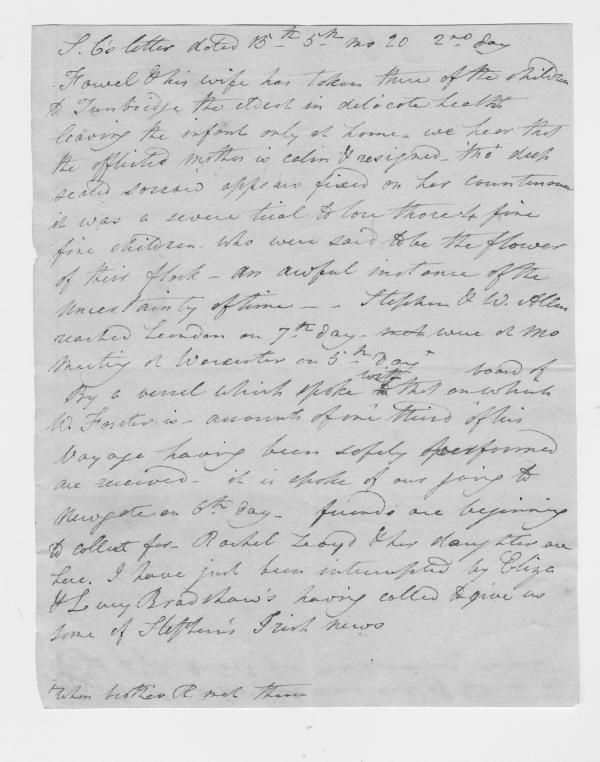 S. C's letter dated 15th 5th mo 20 2nd day
Fowel & his wife has taken three of the children
to Tunbridge the eldest in delicate health
leaving the infant only at home - we hear that
the afflicted mother is calm & resigned - tho' deep
seated sorrow appears fixed on her countenance
it was a severe trial to lose those 4 fine
fine children who were said to be the flower
of their flock - an awful instance of the
uncertainty of time - - Stephen & W. Allen
reached London on 7th day - were at mo
meeting at Worcester on 5th day + board of
By a vessel which spoke with that on which
W. Forster is - accounts of one third of his
Voyage having been safely performed
are received - it is spoke of our going to
Newgate on 6th day - friends are beginning
to collect for - Rachel Lloyd & her daughter are
here. I have just been interrupted by Eliza
& Lucy Bradshaw's having called to give us
some of Stephen's Irish news
+ When brother R met them